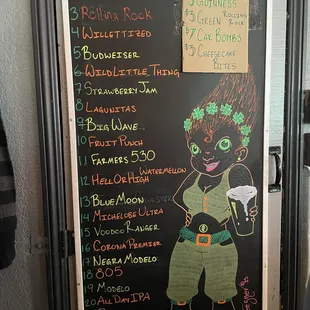 3 Rolling Rock
4 Willettized
5 Budweiser
6 Wild Little Thing
7 Strawberry Jam
8 Lagunitas
9 Big Wave
10 Fruit Punch
11 Farmers 530
12 Hell Or High Watermelon
13 Blue Moon
14 Michelobe Ultra
15 Voodoo Ranger
16 Corona Premier
17 Negra Modelo
18 805
19 Modelo
20 All Day IPA
Guinness
$3 Green Rolling Rock
$7 Car Bombs
$3 Cheesecake Bites